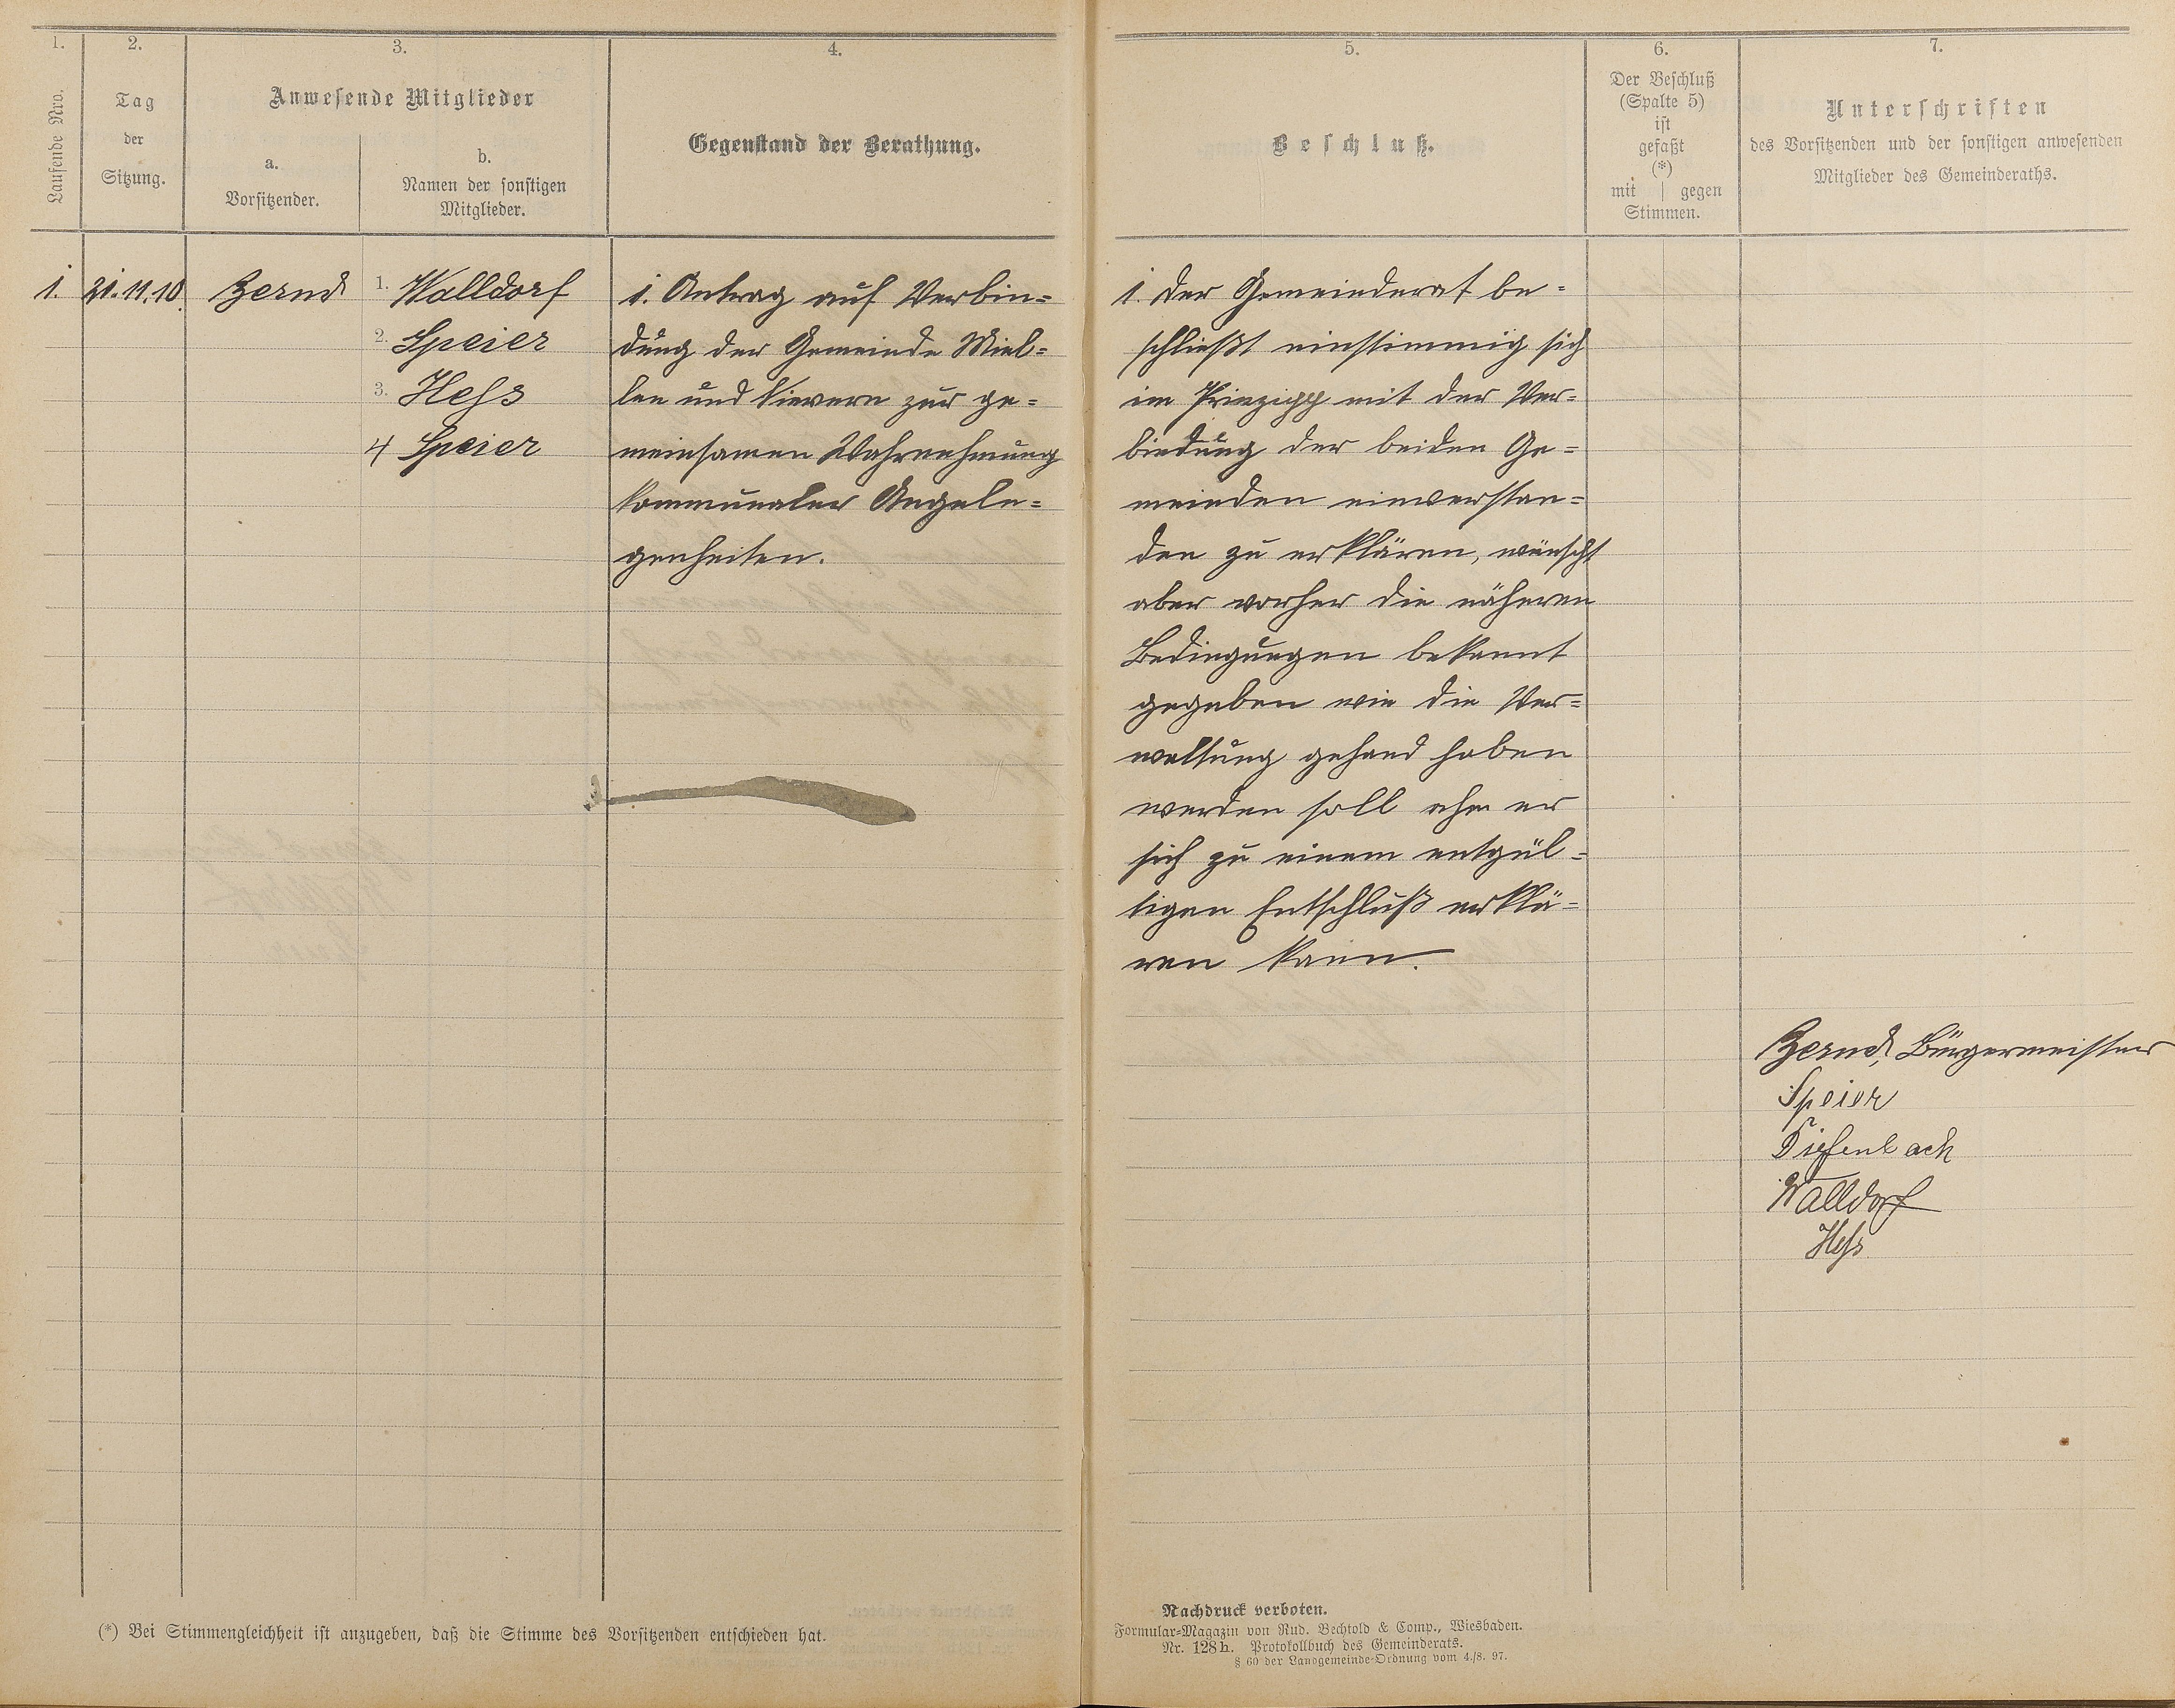 1.
Laufende Nro.
2.
Tag
der
Sitzung.
3.
Anwesende Mitglieder
a.
Vorsitzender.
b.
Namen der sonstigen
Mitglieder.
4.
Gegenstand der Berathung.
1.
21.11.10.
Zernd
1. Walldorf
2. Speier
3. Heſs
4 Speier
1. Antrag auf Verbin=
dung der Gemeinde Miel=
len und Nievern zur ge=
meinsamen Wahrnehmung
kommunaler Angele=
genheiten.
(*) Bei Stimmengleichheit ist anzugeben, daß die Stimme des Vorsitzenden entschieden hat.
5.
Beschluß.
6.
Der Beschluß
(Spalte 5)
ist
gefaßt
(*)
mit | gegen
Stimmen.
7.
Unterschriften
des Vorsitzenden und der sonstigen anwesenden
Mitglieder des Gemeinderaths.
1. Der Gemeinderat be=
schließt einstimmig sich
im Prinzipp mit der Ver=
bindung der beiden Ge=
meinden einverstan=
den zu erklären, wünscht
aber vorher die näheren
Bedingungen bekannt
gegeben wie die Ver=
waltung gehand haben
werden soll ehe er
sich zu einem entgül=
tigen Entschluß erklä=
ren kann.
Zernd, Bürgermeister
Speier
Diefenbach
Walldorf
Heſs
Nachdruck verboten.
Formular-Magazin von Rud. Bechtold & Comp., Wiesbaden.
Nr. 128h. Protokollbuch des Gemeinderats.
§ 60 der Landgemeinde-Ordnung vom 4./8. 97.